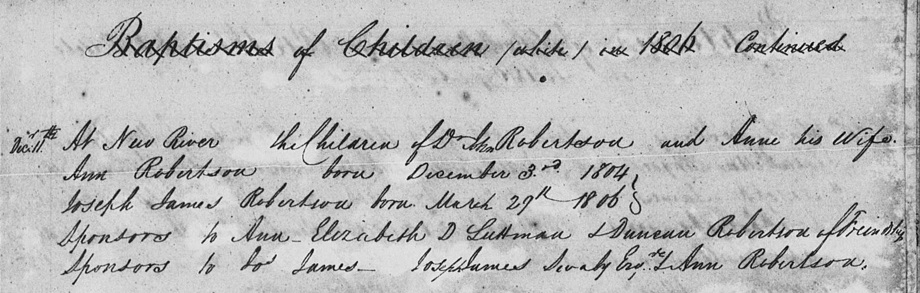 Baptisms of Children (white) in 1806 Continued
Decr. 11th At New River the Children of Dr. Jno Robertson and Anne his Wife.
Ann Robertson born December 3rd 1804
Joseph James Robertson born March 29th 1806
Sponsors to Ann - Elizabeth D Luttman & Duncan Robertson of Friendship
Sponsors to Jos James - Joseph James Swaby Esqre & Ann Robertson.